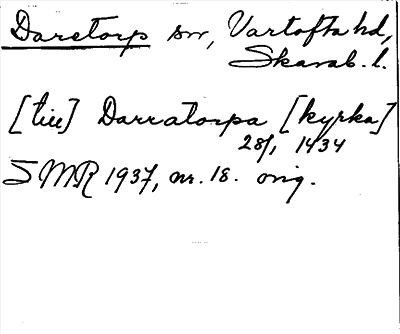 Daretorp sn, Vartofta hd,
Skarab. l.
[till] Darratorpa [kyrka]
28/1 1434
SMR 1937, nr. 18. orig.